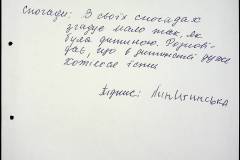 Спогади: В своїх спогадах
згадує мало так, як
була дитиною. Розпові-
дає, що в дитинстві дуже
хотілося їсти
Підпис: